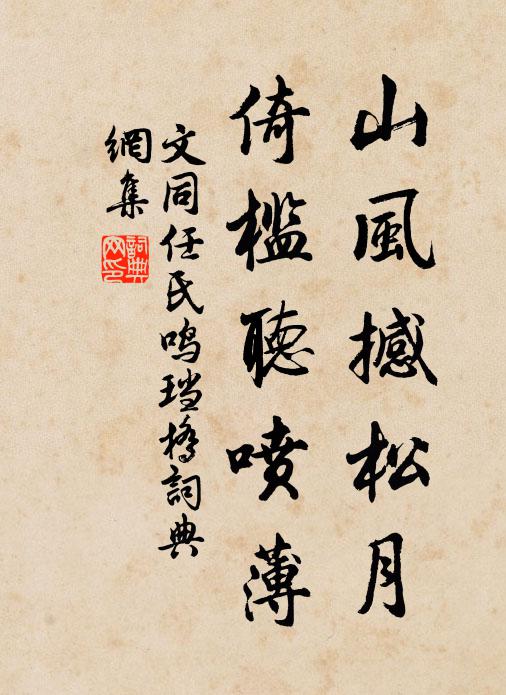 山風撼松月
倚檻聽噴薄
文同任氏鳴珰橋詞典
網集
詞典
网印